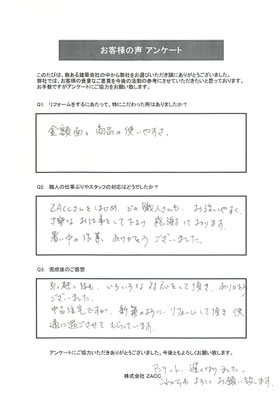 お客様の声 アンケート
このたびは、数ある建築会社の中から弊社をお選びいただき誠にありがとうございました。
弊社では、お客様の貴重なご意見を今後の活動の参考にさせていただきたいと思っております。
お手数ですがアンケートにご協力をお願い致します。
Q1. リフォームをするにあたって、特にこだわった所はありましたか？
金額面と商品の使いやすさ。
Q2. 職人の仕事ぶりやスタッフの対応はどうでしたか？
ZACCさんをはじめ、どの職人さんも、お話しやすく、
丁寧なお仕事をして下さり 感謝しております。
暑い中の作業、ありがとうございました。
Q3. 完成後のご感想
引っ越し後も、いろいろな対応をして頂き、ありがとう
ございました。
中古住宅ですが、新築のように リフォームして頂き 快
適に過ごさせてもらっています。
アンケートにご協力いただきありがとうございました。今後ともよろしくお願い致します。
株式会社 ZACC
アンケート、遅くなりました。
お願い致します。